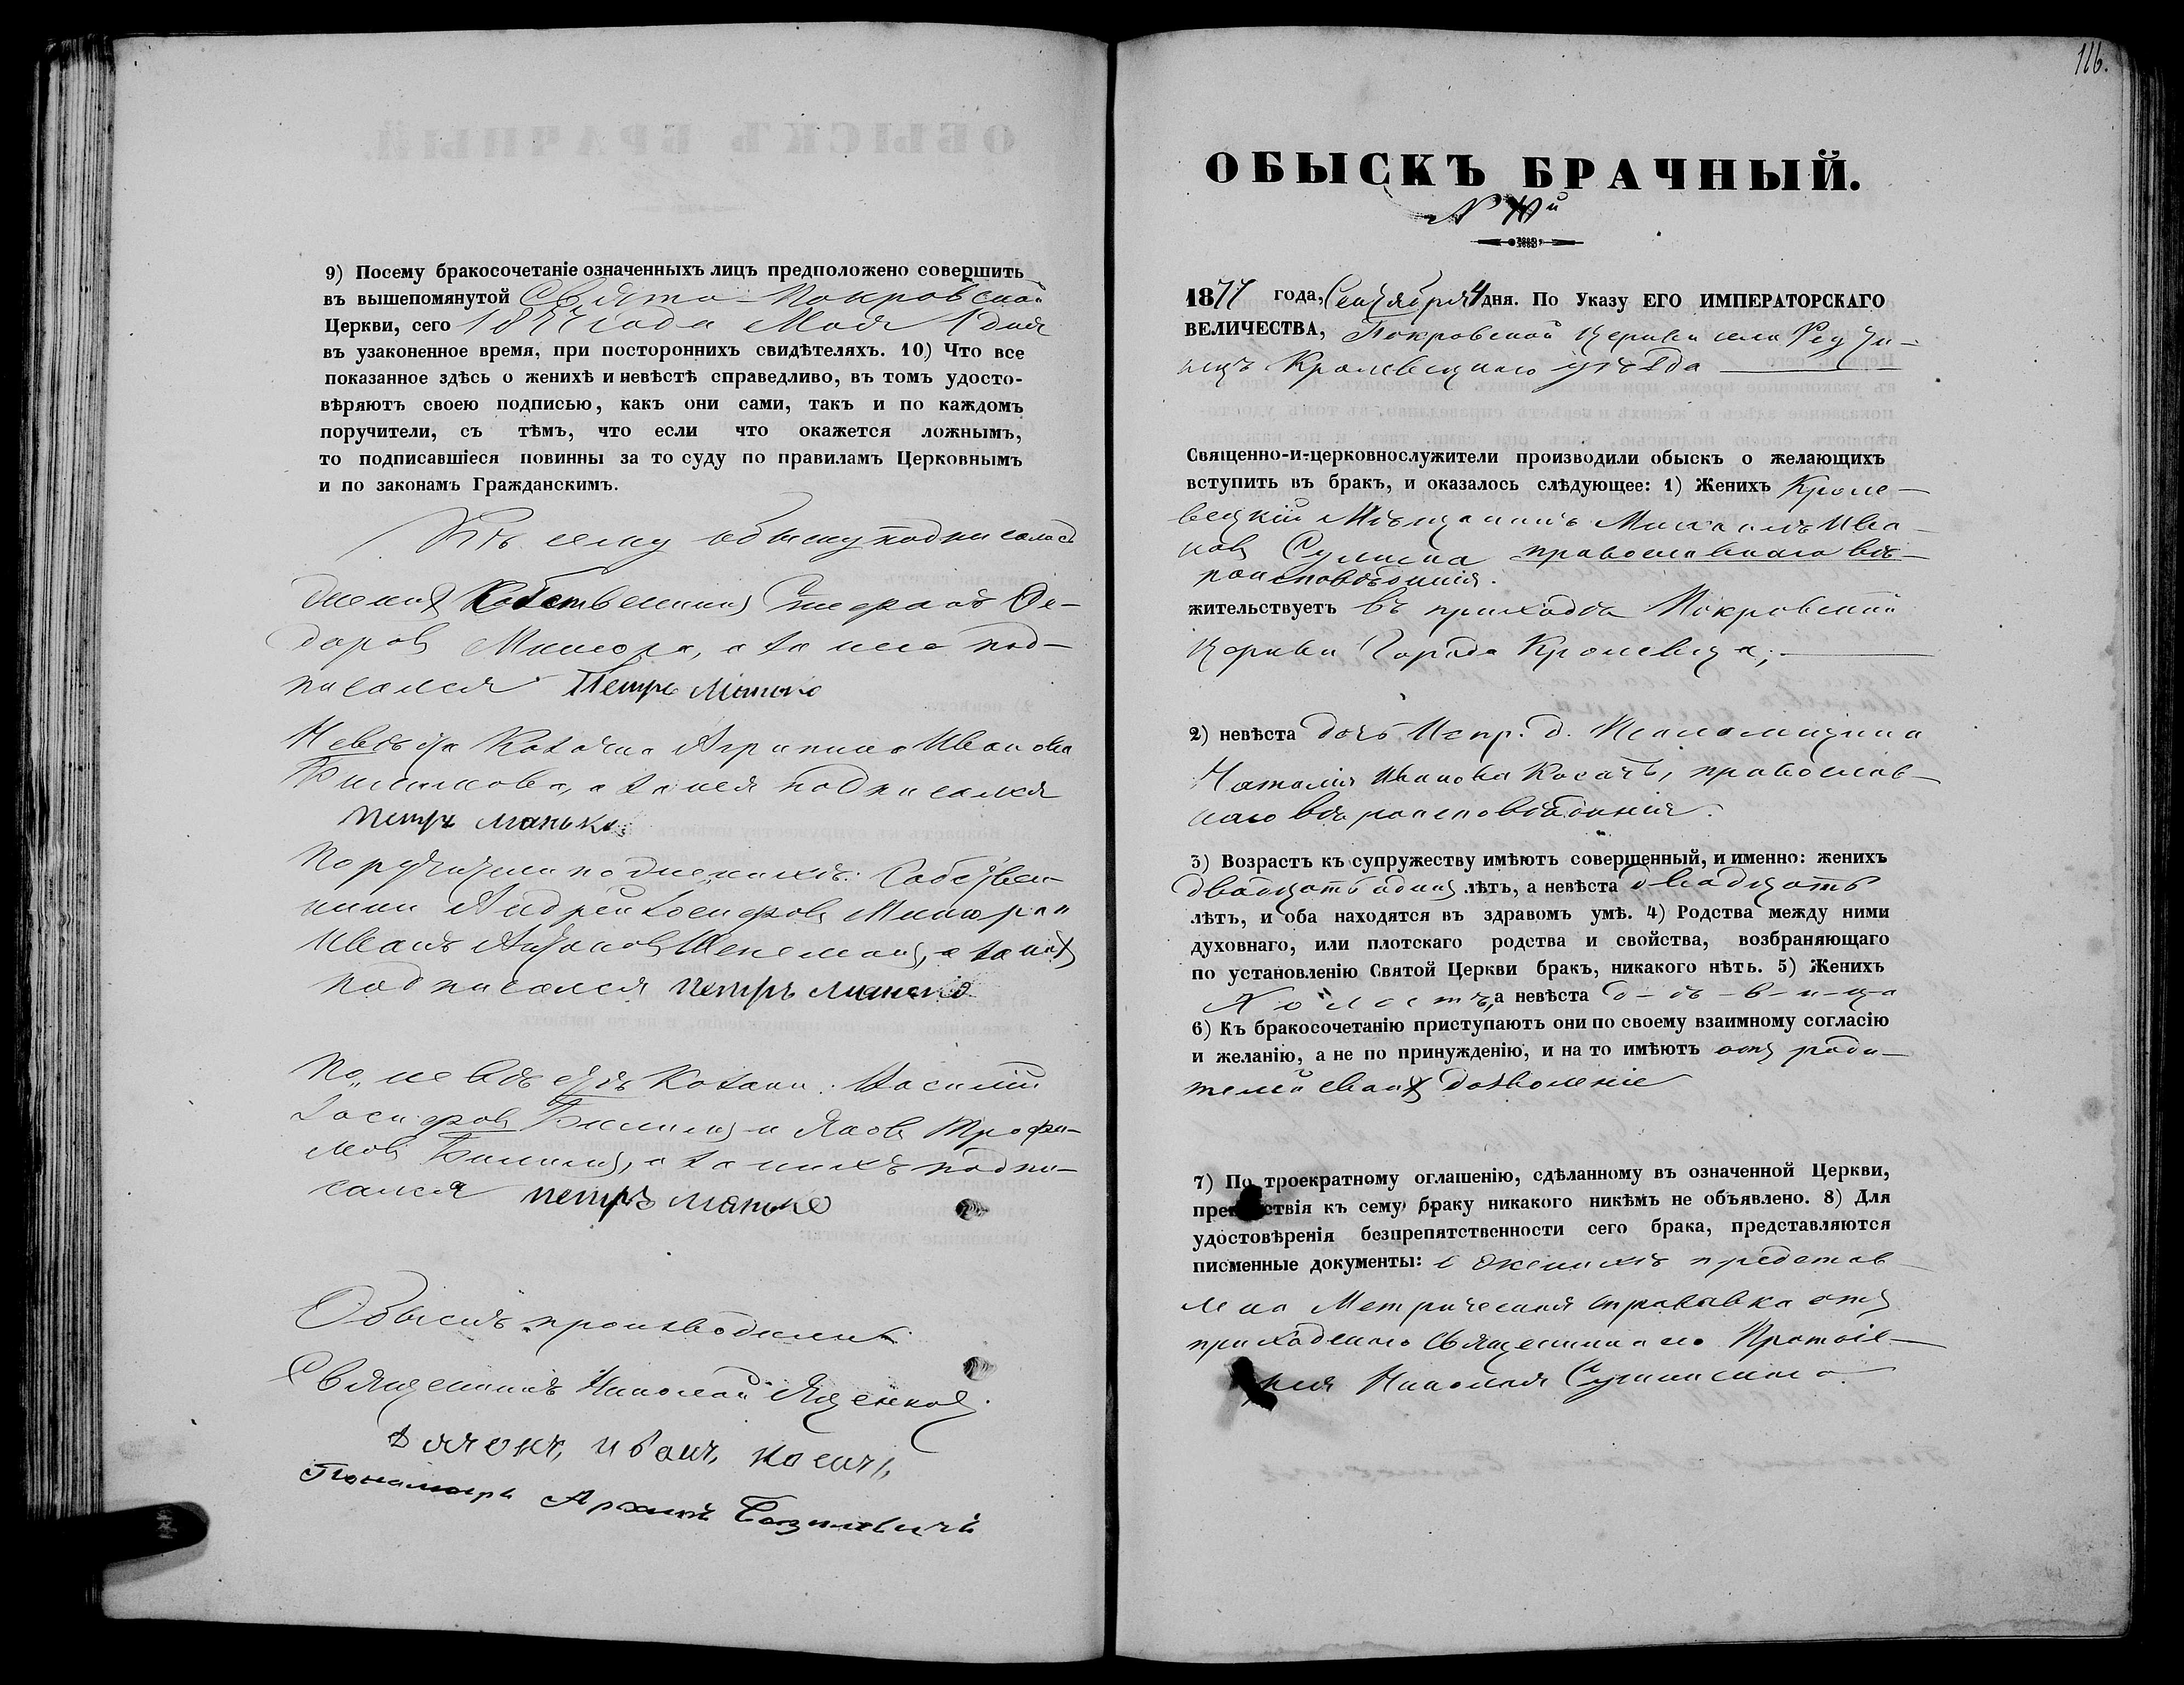 9) Посему бракосочетаніе означенныхъ лицъ предположено совершить
въ вышепомянутой Свято-Покровской
Церкви, сего 1877 года Мая 1 дня
въ узаконенное время, при постороннихъ свидѣтеляхъ. 10) Что все
показанное здѣсь о женихѣ и невѣстѣ справедливо, въ томъ удосто-
вѣряютъ своею подписью, какъ они сами, такъ и по каждомъ
поручители, съ тѣмъ, что если что окажется ложнымъ,
то подписавшіеся повинны за то суду по правиламъ Церковнымъ
и по законамъ Гражданскимъ.
Къ сему обыску подписалась
Женихъ Стефанъ Фе-
доровъ а за него под-
писался Петръ Манько
Невѣста Козачка Агрипина Иванова
а за нея подписался
Петръ Манько
Поручители по женихѣ: Собствен-
ники Андрей Іосифовъ
Иванъ а за нихъ
подписался Петръ Манько
По невѣстѣ Козаки: Василій
Іосифовъ и Яковъ Трофи-
мовъ а за нихъ подпи-
сался Петръ Манько
Обыскъ производили:
Священникъ Николай Ященко
Дячокъ, Иванъ, Косачъ,
Пономарь
116.
ОБЫСКЪ БРАЧНЫЙ.
N
1877 года, Сентября 4 дня. По Указу ЕГО ИМПЕРАТОРСКАГО
ВЕЛИЧЕСТВА, Покровской Церкви села Реути-
нецъ Кролевецкаго уѣзда
Священно-и-церковнослужители производили обыскъ о желающихъ
вступить въ бракъ, и оказалось слѣдующее: 1) Женихъ Кроле-
вецкій Мѣщанинъ Михаилъ Ива-
новъ православнаго вѣ-
роисповѣданія.
жительствуетъ въ приходѣ Покровской
Церкви Города Кролевца;
2) невѣста дочь Испр. д. Псаломщика
Наталія Иванова Косачъ, православ-
наго вѣроисповѣданія.
3) Возрастъ къ супружеству имѣютъ совершенный, и именно: женихъ
двадцать одинъ лѣтъ, а невѣста двадцать
лѣтъ, и оба находятся въ здравомъ умѣ. 4) Родства между ними
духовнаго, или плотскаго родства и свойства, возбраняющаго
по установленію Святой Церкви бракъ, никакого нѣтъ. 5) Женихъ
Холостъ, а невѣста д-ѣ-в-и-ц-а
6) Къ бракосочетанію приступаютъ они по своему взаимному согласію
и желанію, а не по принужденію, и на то имѣютъ отъ роди-
телей своихъ дозволеніе
7) По троекратному оглашенію, сдѣланному въ означенной Церкви,
препятствія къ сему браку никакого никѣмъ не объявлено. 8) Для
удостовѣренія безпрепятственности сего брака, представляются
писменные документы: о женихѣ представ-
лена Метрическая справка отъ
приходскаго Священника Протоіе-
рея Николая